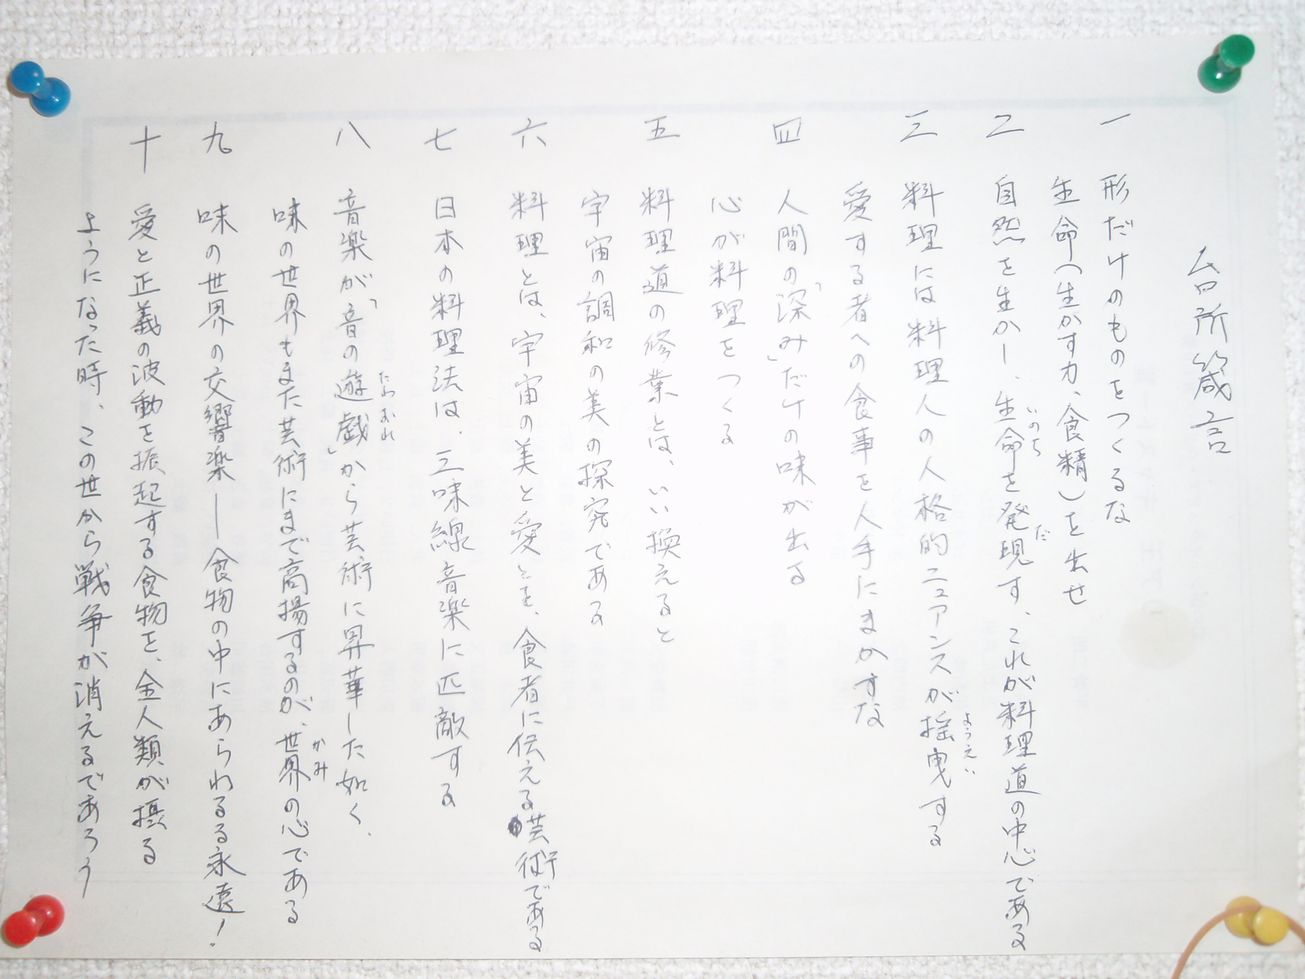 台所箴言
一 形だけのものをつくるな
生命(生かす力、食精)を出せ
二 自然を生かし、生命を発現す、これが料理道の中心である
いのち
だ
三 料理には料理人の人格的ニュアンスが揺曳する
ようえい
愛する者への食事を人手にまかすな
四 人間の「深み」だけの味が出る
心が料理をつくる
五 料理道の修業とは、いい換えると
宇宙の調和の美の探究である
六 料理とは、宇宙の美と愛とを、食者に伝える芸術である
七 日本の料理法は、三味線音楽に匹敵する
八 音楽が「音の遊戯」から芸術に昇華した如く、
たわむれ
味の世界もまた芸術にまで高揚するのが、世界の心である
かみ
九 味の世界の交響楽―食物の中にあらわるる永遠!
十 愛と正義の波動を振起する食物を、全人類が摂る
ようになった時、この世から戦争が消えるであろう